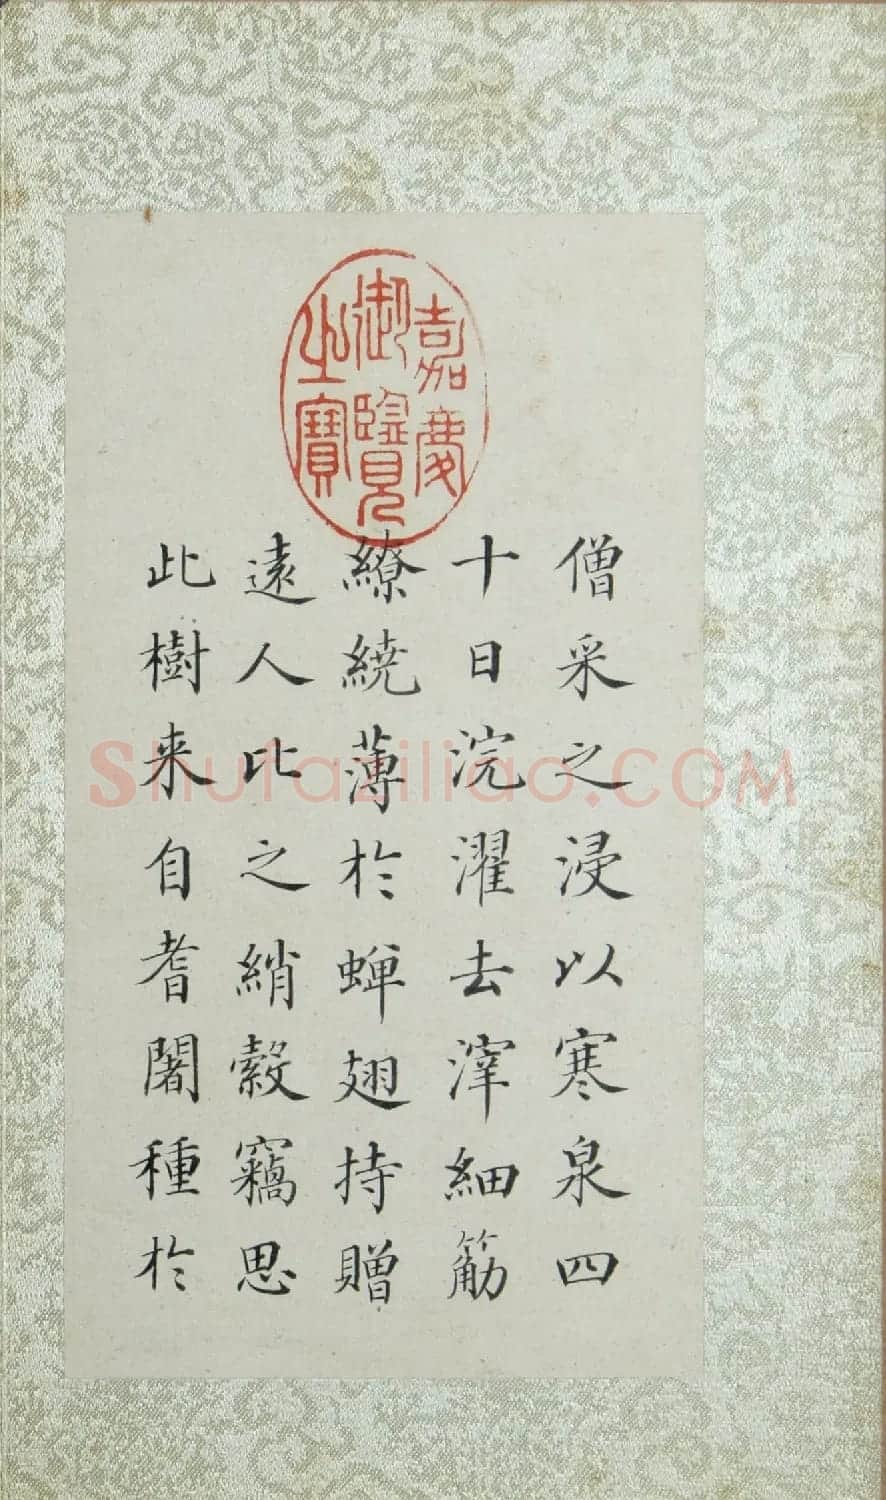 嘉慶
御覽
之寶
僧采之浸以寒泉四
十日浣濯去滓細筋
繚繞薄於蟬翅持贈
遠人比之綃縠竊思
此樹来自耆闍種於
Shufaziliao.COM